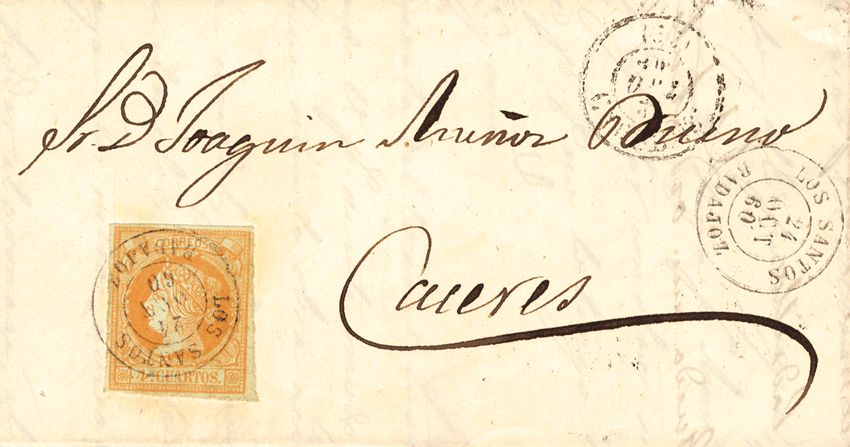 Sr. D. Joaquin Muñoz Bueno
Caceres
LOS SANTOS
24
OCT
60
BADAJOZ
CORREOS
4 CUARTOS.
LOS SANTOS
24
OCT
60
BADAJOZ